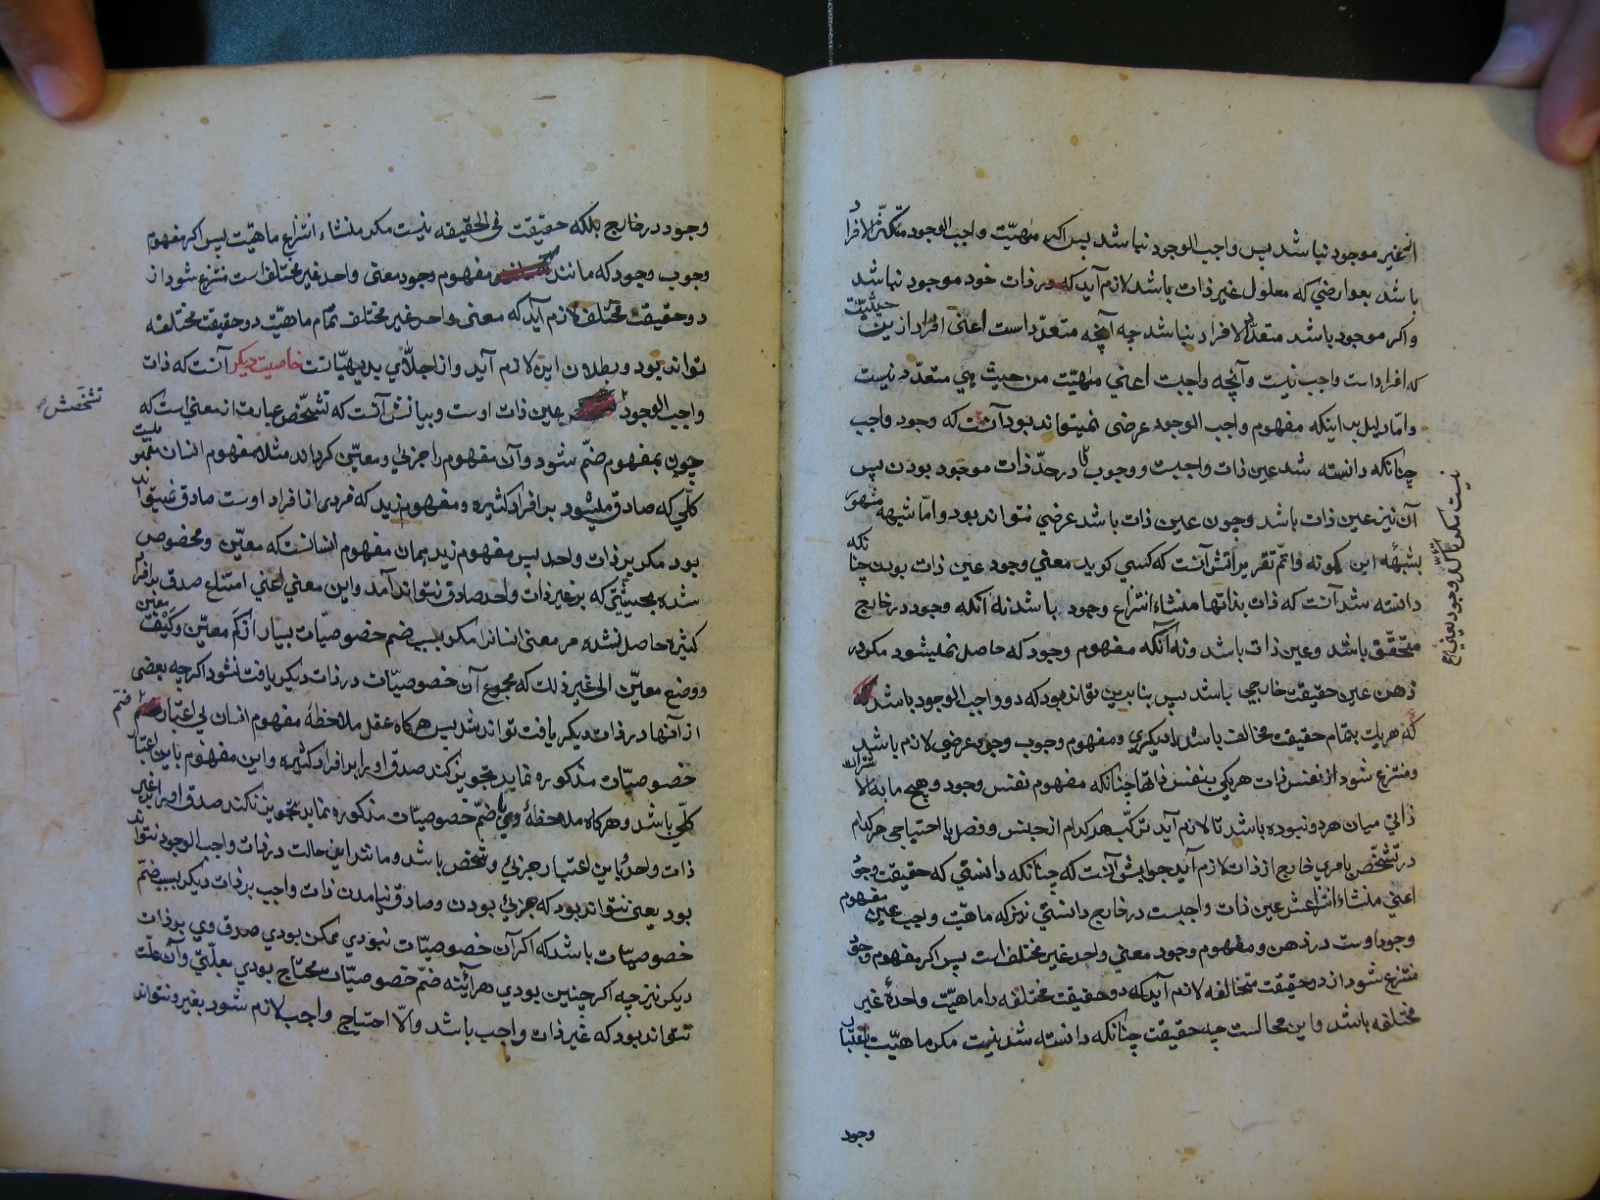 از غیر موجود نباشد پس واجب الوجود نباشد پس اکر مهیّت واجب الوجود متکثّر الافراد
باشد بعوارضی که معلول غیر ذات باشد لازم آید که در ذات خود موجود نباشد
واکر موجود باشد متعدّد الافراد نباشد چه آنچه متعدّد است اعنی افراد ازین حیثیّت
که افراد است واجب نیست وآنچه واجبست اعنی مهیّت من حیث هی متعدّد نیست
وامّا دلیل بر اینکه مفهوم واجب الوجود عرضی نمیتواند بود آنست که وجود واجب
چنانکه دانسته شد عین ذات واجبست ووجوب در حدّ ذات موجود بودن پس
آن نیز عین ذات باشد وچون عین ذات باشد عرضی نتواند بود وامّا شبهه مشهور
بشبهٔه ابن کمونه واتمّ تقریراتش آنست که کسی کوید معنی وجود عین ذات بودن چنانکه
دانسته شد آنست که ذات بذاتها منشاء انتزاع وجود باشد نه آنکه وجود در خارج
متحقّق باشد وعین ذات باشد ونه آنکه مفهوم وجود که حاصل نمیشود مکر در
ذهن عین حقیقت خارجی باشد پس بنابرین تواند بود که دو واجب الوجود باشد
که هر یک بتمام حقیقت مخالف باشد با دیکری ومفهوم وجوب وجود عرضی لازم باشد
ومنتزع شود از نفس ذات هر یکی بنفس ذاتها چنانکه مفهوم نفس وجود وهیچ ما به الاشتراک
ذاتی میان هر دو نبوده باشد تا لازم آید ترکّب هر کدام از جنس وفصل یا احتیاجی هر کدام
در تشخّص بامری خارج از ذات لازم آید جوابش آنست که چنانکه دانستی که حقیقت وجود
اعنی منشاء انتزاعش عین ذات واجبست در خارج دانستی نیز که ماهیّت واجب عین مفهوم
وجود اوست در ذهن ومفهوم وجود معنی واحد غیر مختلف است پس اکر مفهوم وجود
منتزع شود از دو حقیقت متخالفه لازم آید که دو حقیقت مختلفه را ماهیّت واحدهٔ غیر
مختلفه باشد واین محالست چه حقیقت چنانکه دانسته شد نیست مکر ماهیّت باعتبار
وجود
نیست مکر تأکّد وجود یعنی
وجود در خارج بلکه حقیقت فی الحقیقه نیست مکر منشاء انتزاع ماهیّت پس اکر مفهوم
وجوب وجود که مانند مفهوم وجود معنی واحد غیر مختلف است منتزع شود از
دو حقیقت مختلف لازم آید که معنی واحد غیر مختلف تمام ماهیّت دو حقیقت مختلفه
تواند بود وبطلان این لازم آید واز اجلای بدیهیّاتست خاصیت دیکر آنست که ذات
واجب الوجود عین ذات اوست وبیانش آنست که تشخّص عبارت از معنی است که
تشخّصش
چون بمفهوم ضمّ شود وآن مفهوم را جزئی ومعیّن کرداند مثلا مفهوم انسان
کلّی که صادق میشود بر افراد کثیره ومفهوم زید که فردی از افراد اوست صادق نمیتواند
بود مکر بر ذات واحد پس مفهوم زید همان مفهوم انسانست که معیّن ومخصوص
شده بحیثیّتی که بر غیر ذات واحد صادق نتواند آمد واین معنی اعنی امتناع صدق بر افراد
کثیره حاصل نشده مر معنی انسان را مکر بسبب ضم خصوصیّات بسیار از کم معیّن وکیف معین
ووضع معیّن الی غیر ذلک که مجموع آن خصوصیّات در ذات دیکر یافت نشود اکرچه بعضی
از آنها در ذات دیکر یافت تواند شد پس هرکاه عقل ملاحظهٔ مفهوم انسان بی اعتبار ضمّ
خصوصیّات مذکوره نماید تجویز کند صدق او را بر افراد کثیره واین مفهوم باین اعتبار
کلّی باشد وهرکاه ملاحظهٔ وی با ضمّ خصوصیّات مذکوره نماید تجویز نکند صدق او را بر غیر
ذات واحد وباین اعتبار جزئی وشخص باشد ومانند این حالت در ذات واجب الوجود نتواند
بود یعنی نتواند بود که جزئی بودن وصادق نیامدن ذات واجب بر ذات دیکر بسبب ضمّ
خصوصیّات باشد که اکر آن خصوصیّات نبودی ممکن بودی صدق وی بر ذات
دیکر نیز چه اکر چنین بودی هر آینه ضم خصوصیّات محتاج بودی بعلّتی وآن علّت
نتواند بود که غیر ذات واجب باشد والّا احتیاج واجب لازم شود بغیر ونتواند